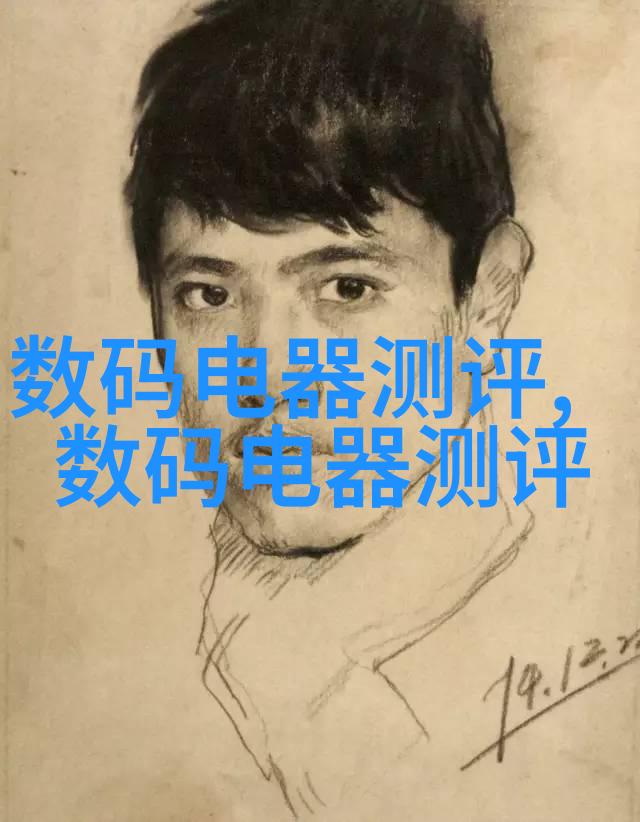 数码电器测评,
数码电器测评
14.12.2